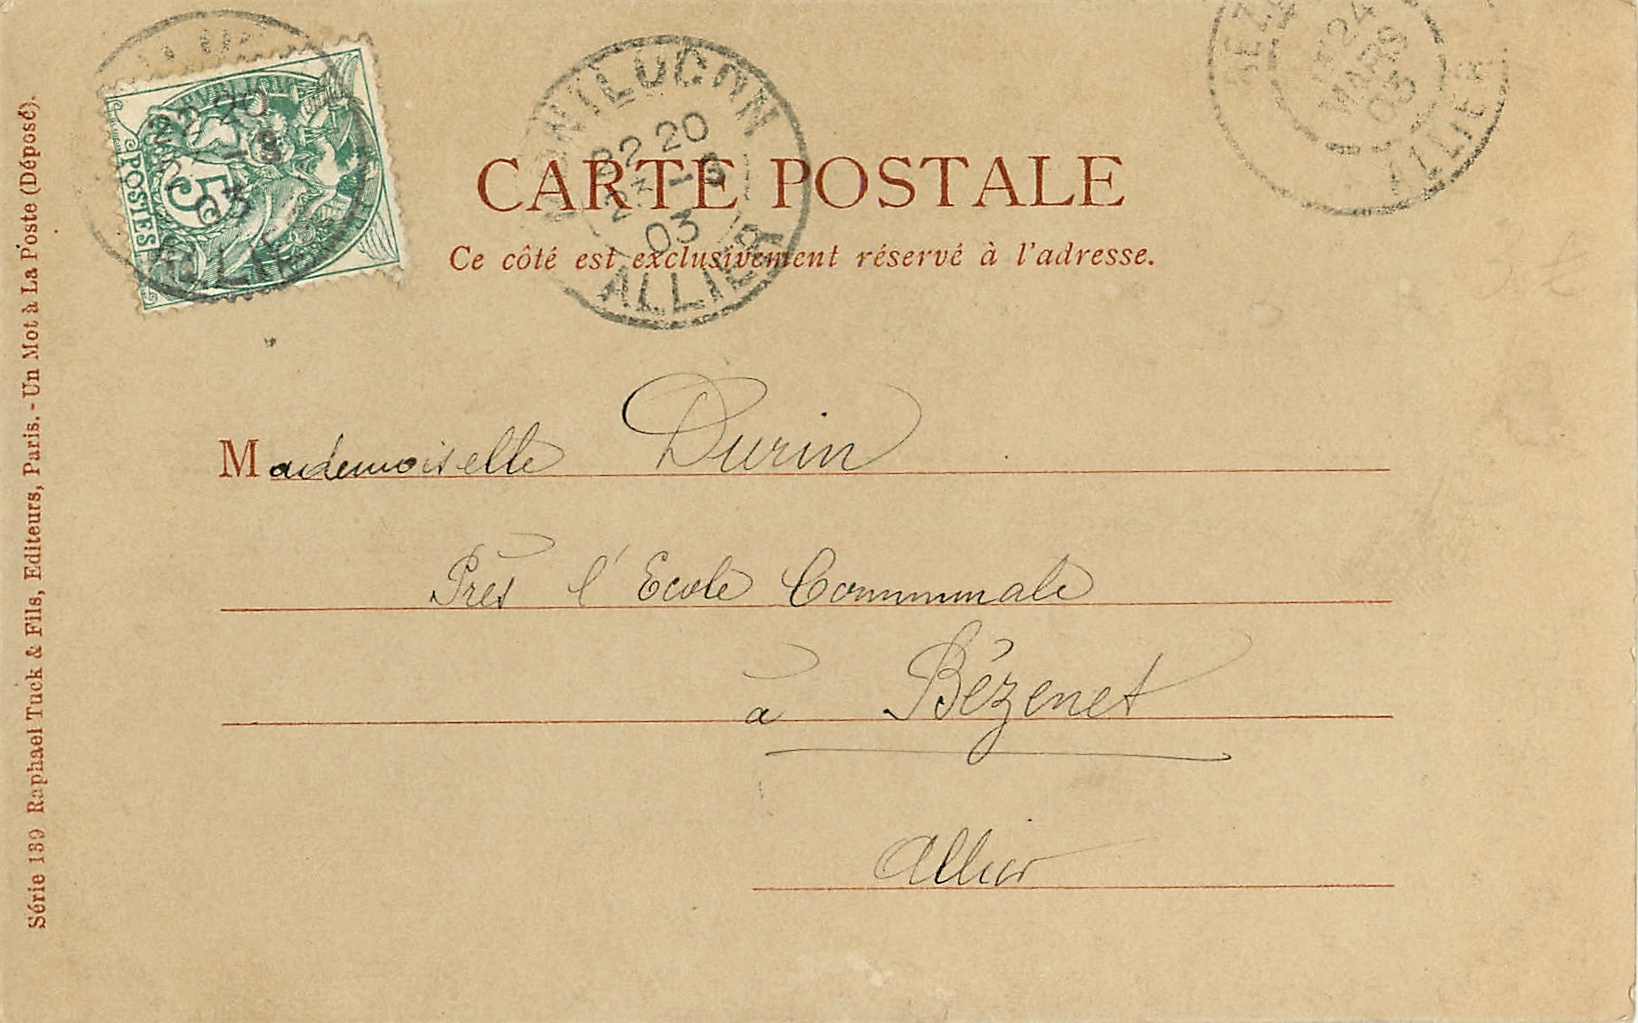 MONTLUCON
22 20
23 -3
03
ALLIER
5
POSTES
CARTE POSTALE
Ce côté est exclusivement réservé à l'adresse.
24
MARS
03
ALLIER
Mademoiselle Durin
Près l'Ecole Communale
à Bézenet
Allier
Série 139 Raphael Tuck & Fils, Editeurs, Paris. - Un Mot à La Poste (Déposé).